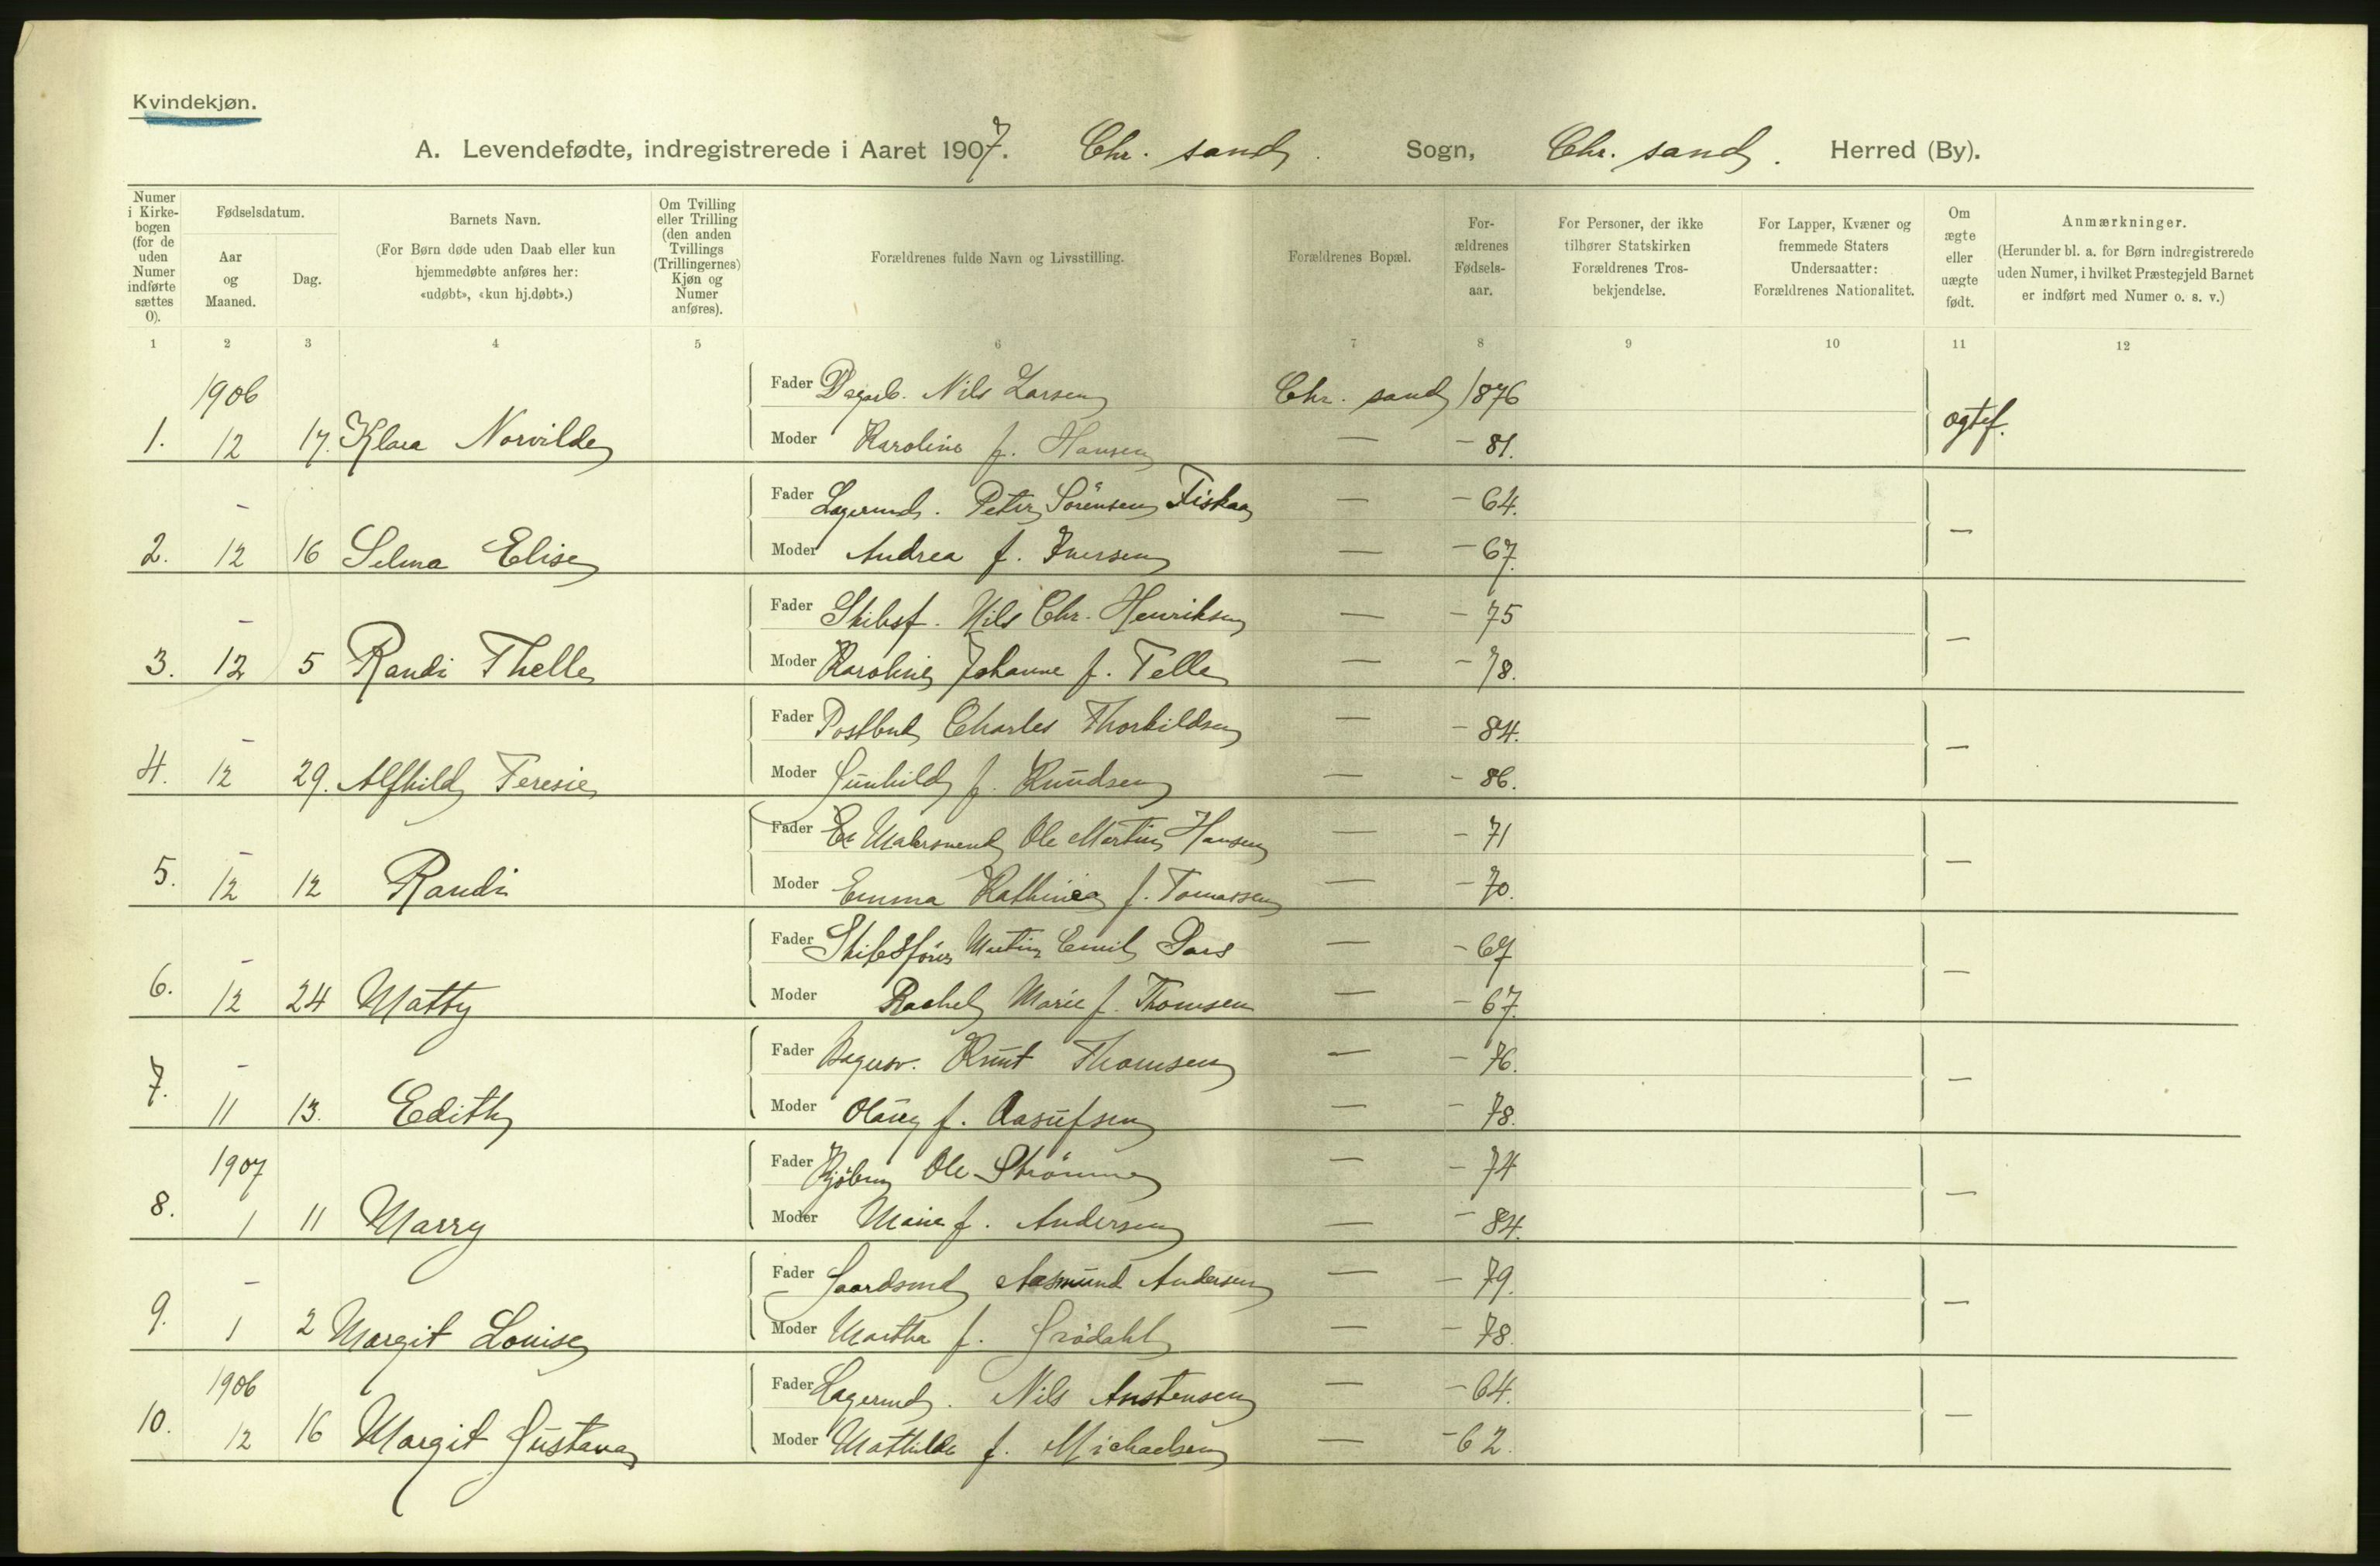 Kvindekjøn.
A. Levendefødte, indregistrerede i Aaret 1907. Chr. sand. Sogn, Chr. sand. Herred (By).
Numer i Kirke-bogen (for de uden Numer indførte sættes 0).
Fødselsdatum.
Aar og Maaned.
Dag.
Barnets Navn.
(For Børn døde uden Daab eller kun hjemmedøbte anføres her: «udøbt», «kun hj.døbt».)
Om Tvilling eller Trilling (den anden Tvillings (Trillingernes) Kjøn og Numer anføres).
Forældrenes fulde Navn og Livsstilling.
Forældrenes Bopæl.
For-ældrenes Fødsels-aar.
For Personer, der ikke tilhører Statskirken Forældrenes Tros-bekjendelse.
For Lapper, Kvæner og fremmede Staters Undersaatter: Forældrenes Nationalitet.
Om ægte eller uægte født.
Anmærkninger.
(Herunder bl. a. for Børn indregistrerede uden Numer, i hvilket Præstegjeld Barnet er indført med Numer o. s. v.)
1 2 3 4 5 6 7 8 9 10 11 12
1906 Fader Dagarb. Nils Larsen Chr. sand 1876
1. 12 17. Klara Norvilde Moder Karoline f. Hansen — - 81. ogtef.
- Fader Lagermd. Peter Sörensen Fiskaa — - 64.
2. 12 16 Selma Elise Moder Andrea f. Iversen — - 67. —
- Fader Skibsf. Nils Chr. Henriksen — - 75
3. 12 5 Randi Thelle Moder Karoline Johanne f. Telle — - 78. —
- Fader Postbud Charles Thorkildsen — - 84.
4. 12 29. Alfhild Teresie Moder Gunhild f. Knudsen — - 86. —
- Fader Malersvend Ole Martin Hansen — - 71
5. 12 12 Randi Moder Emma Kathinea f. Tomassen — - 70. —
- Fader Skibsförer Martin Emil — - 67
6. 12 24 Matty Moder Rachel Marie f. Thomsen — - 67. —
- Fader Bagersv. Knut Thomsen — - 76.
7. 11 13. Edith Moder Olaug f. Aasufsen — - 78. —
1907 Fader Kjöbm Ole Strömme — - 74
8. 1 11 Marry Moder Marie f. Andersen — - 84. —
- Fader Gaardsmd Aasmund Andersen — - 79.
9. 1 2 Margit Louise Moder Martha f. Grödahl — - 78. —
1906 Fader Lagermd. Nils Austensen — - 64.
10. 12 16 Margit Gustava Moder Mathilde f. Michaelsen — - 62. —